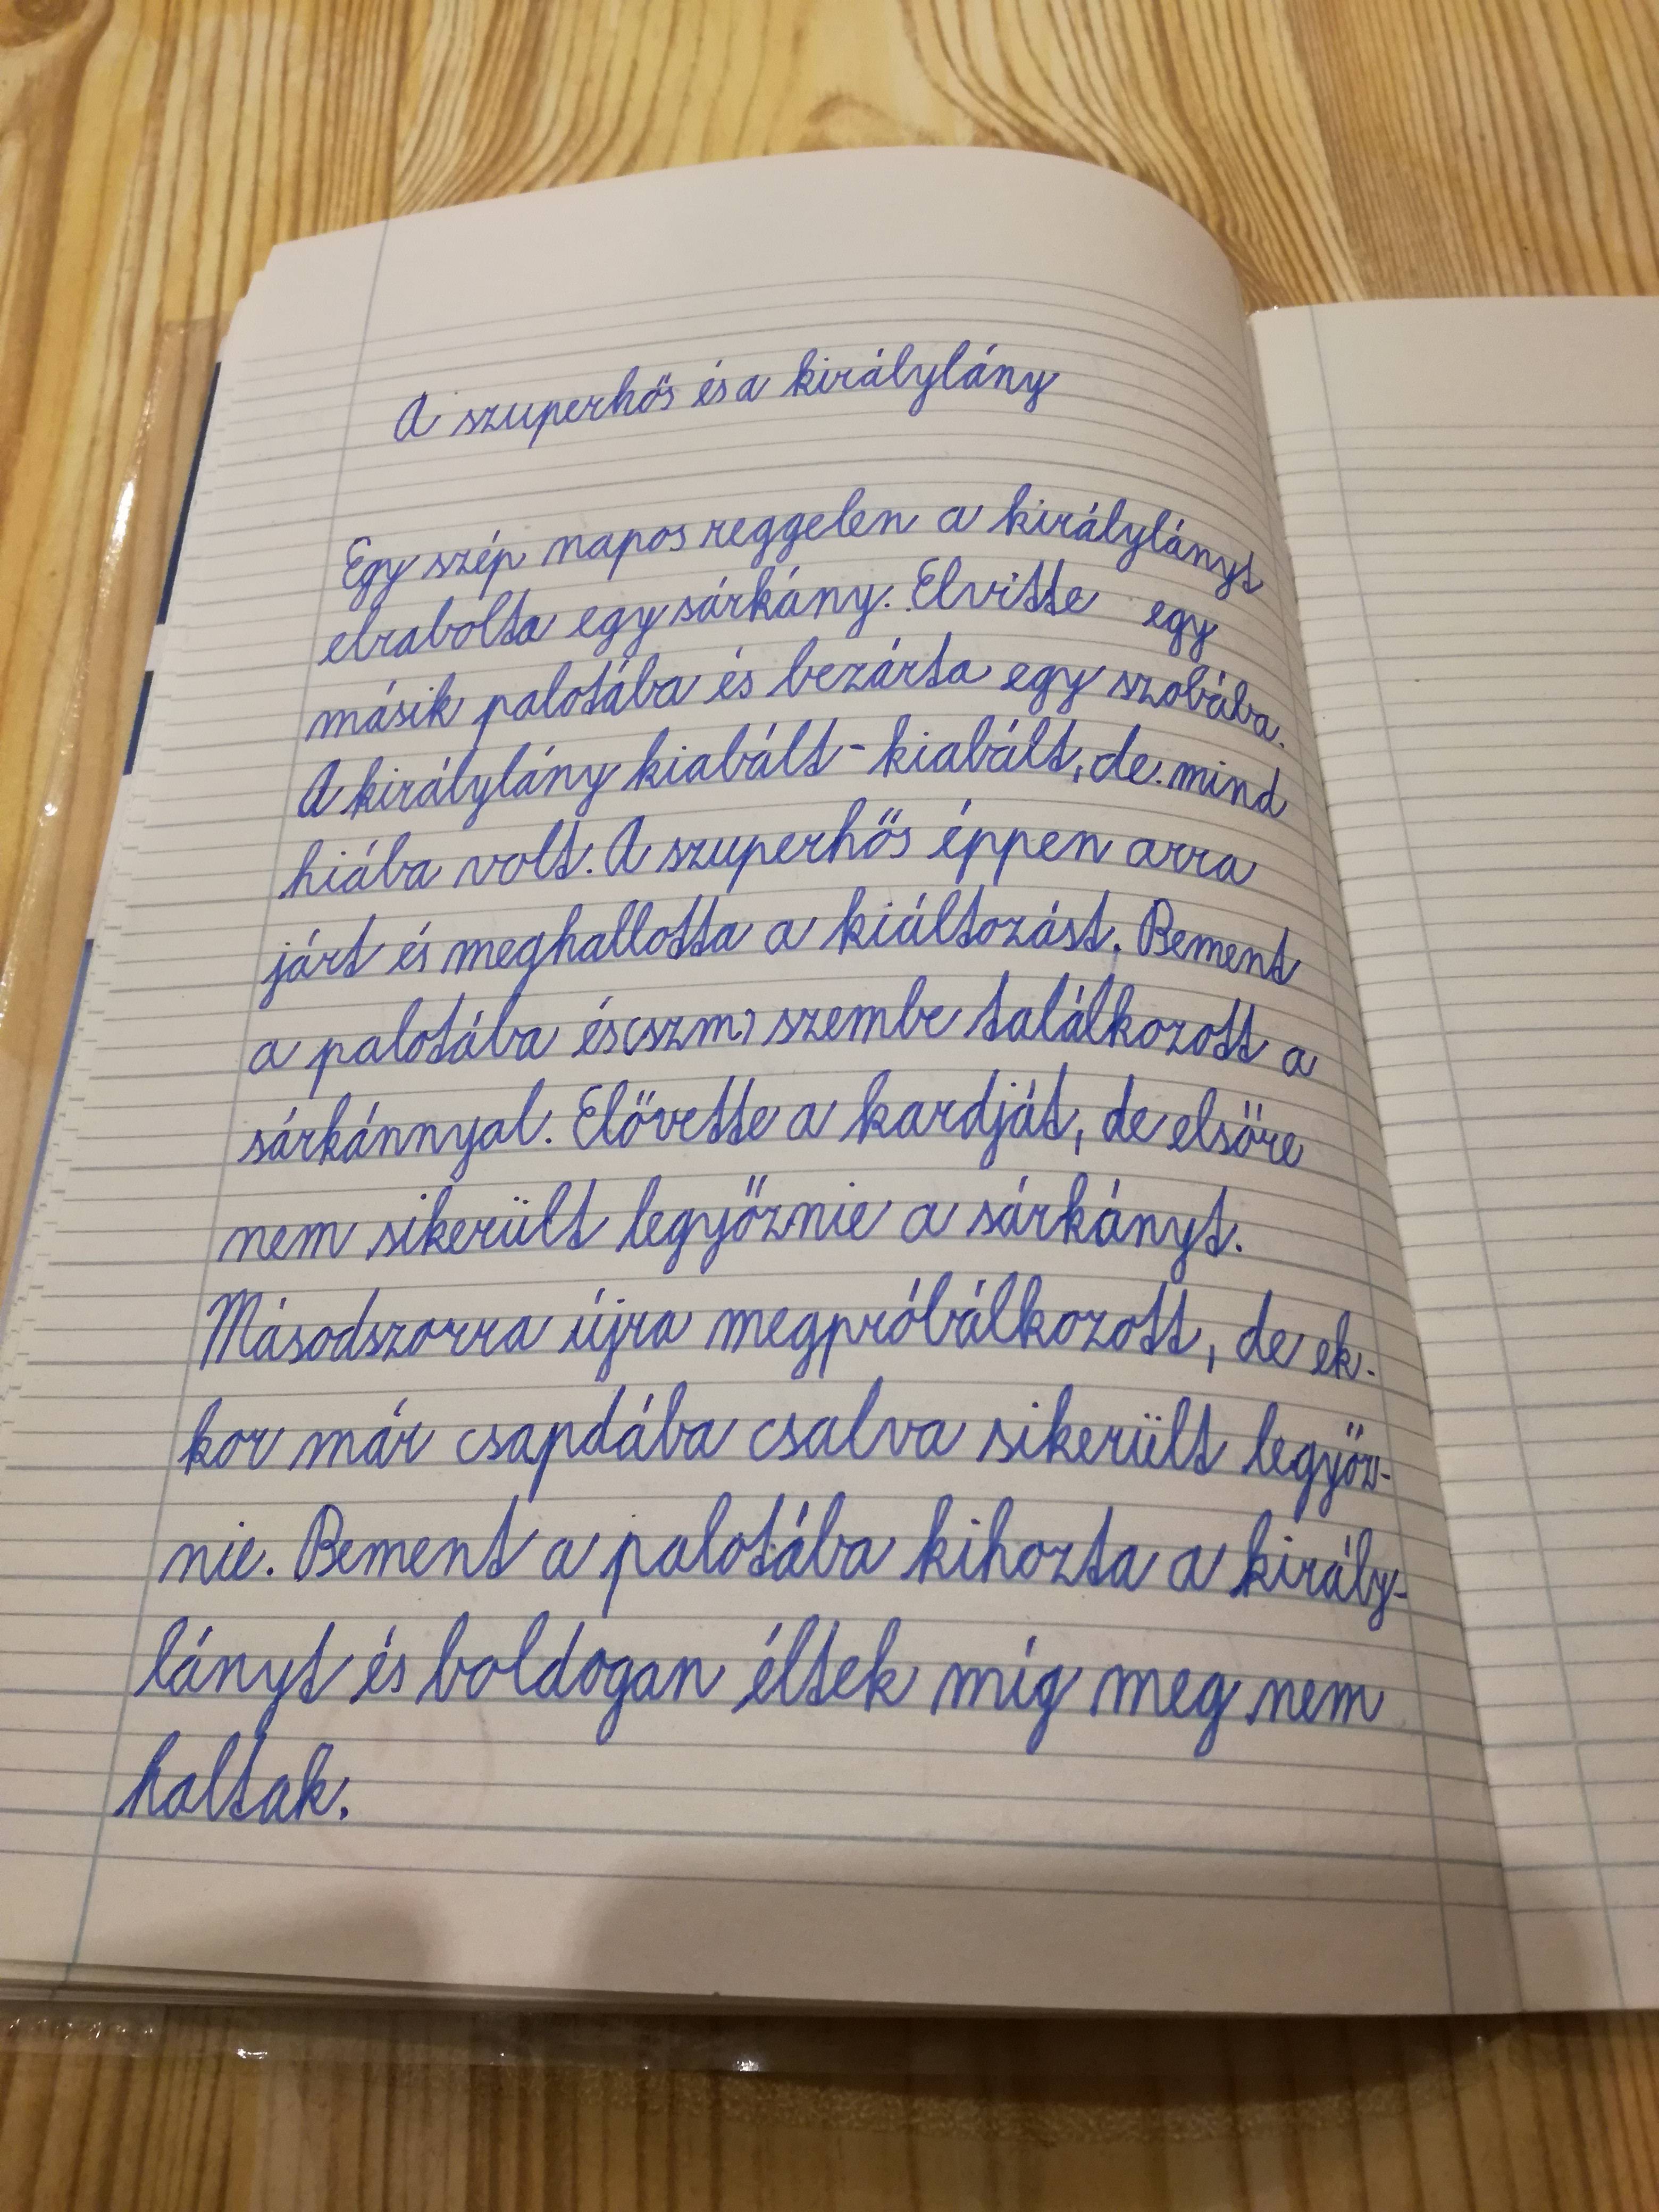 A szuperhős és a királylány
Egy szép napos reggelen a királylányt
elrabolta egy sárkány. Elvitte egy
másik palotába és bezárta egy szobába.
A királylány kiabált-kiabált, de mind
hiába volt. A szuperhős éppen arra
járt és meghallotta a kiáltozást. Bement
a palotába és(szm) szembe találkozott a
sárkánnyal. Elővette a kardját, de elsőre
nem sikerült legyőznie a sárkányt.
Másodszorra újra megpróbálkozott, de ek-
kor már csapdába csalva sikerült legyőz-
nie. Bement a palotába kihozta a király-
lányt és boldogan éltek míg meg nem
haltak.